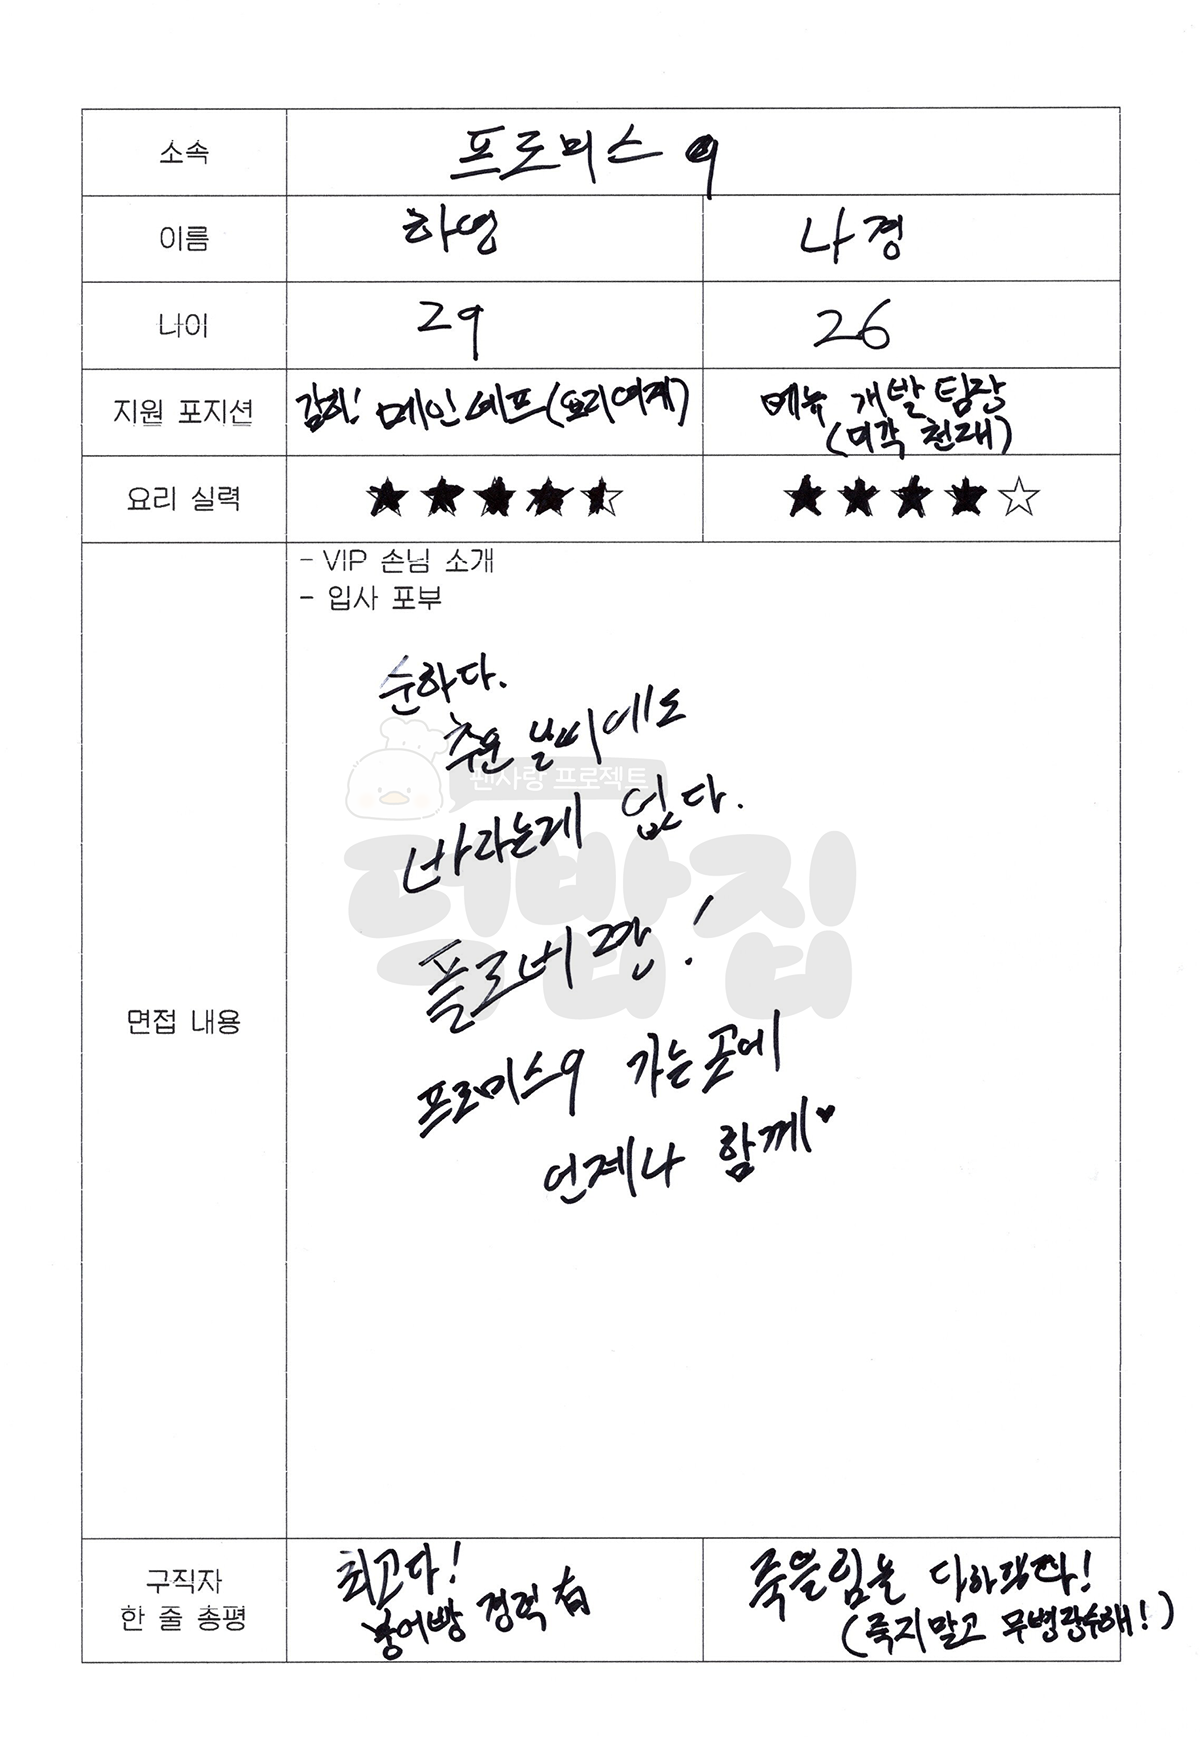 소속 프로미스 9
이름 하영 나경
나이 29 26
지원 포지션 감히! 메인 쉐프 (요리여제) 메뉴 개발 팀장
(미각 천재)
요리 실력 ★★★★★ ★★★★☆
- VIP 손님 소개
- 입사 포부
순하다.
추운 날씨에도
팬사랑 프로젝트
바라는게 없다.
덕밥집
플로버 짱!
면접 내용
프로미스9 가는 곳에
언제나 함께♥
구직자
한 줄 총평
최고다!
붕어빵 경력 有
죽을힘을 다하겠다!
(죽지말고 무병장수해!)